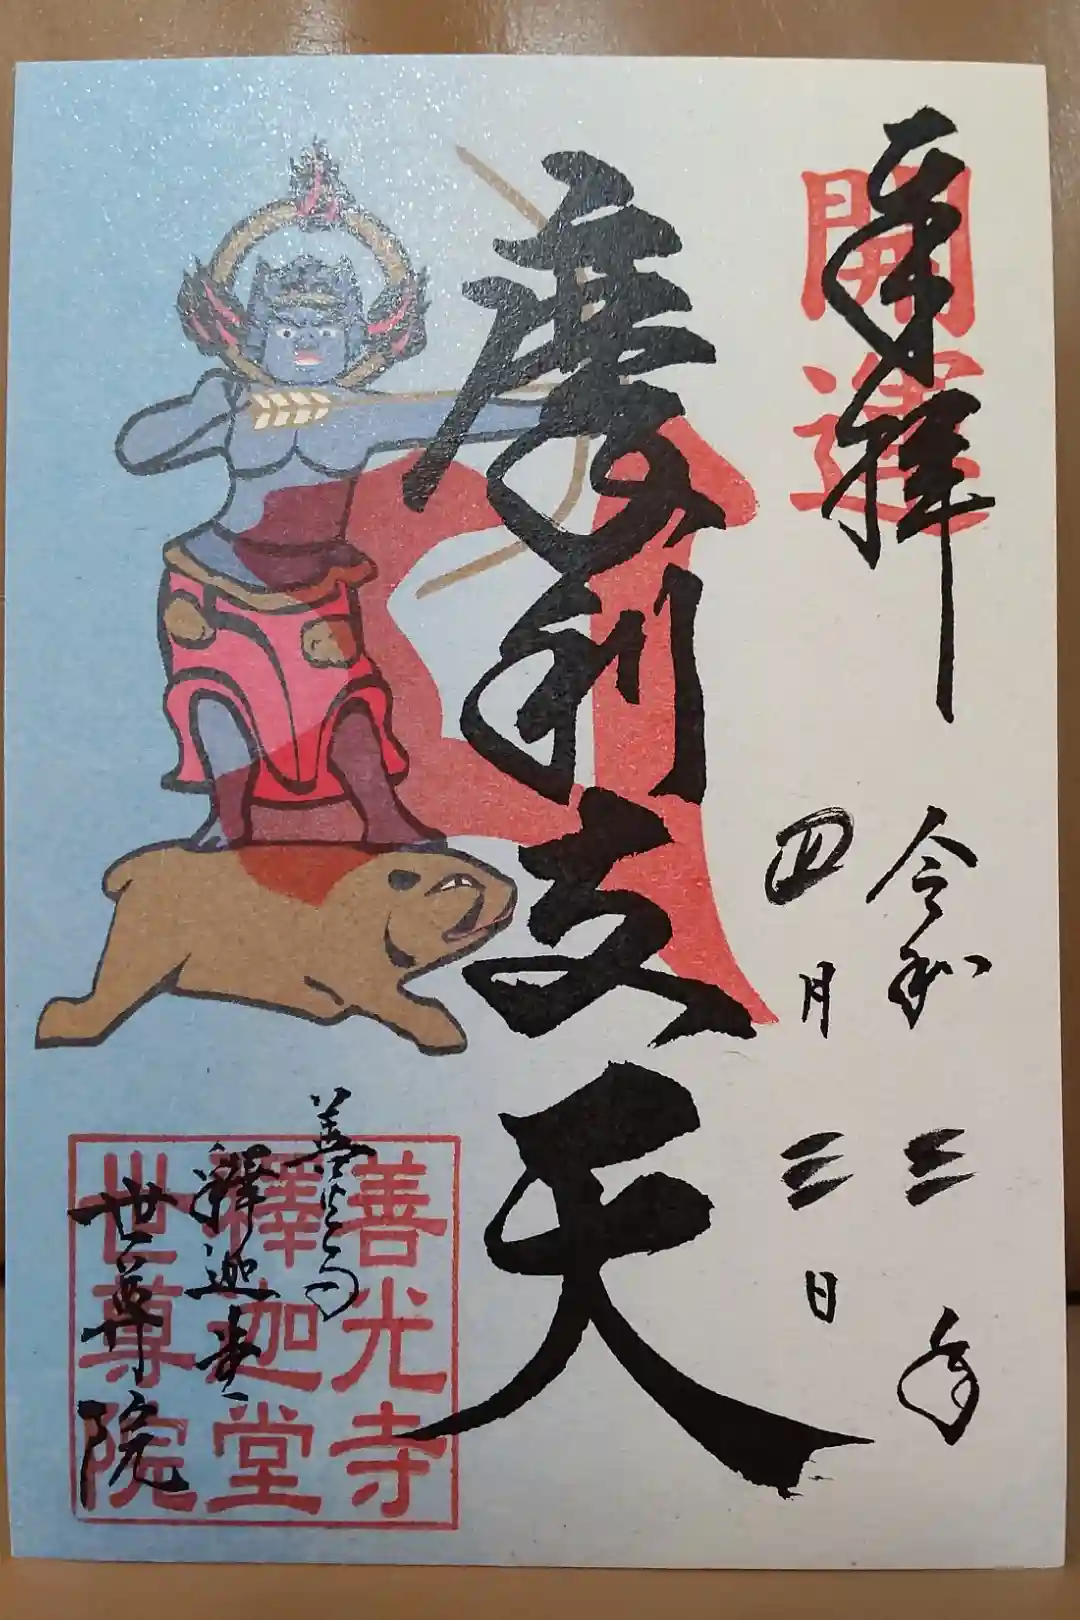 奉拝
開運
令和三年
四月三日
摩利支天
善光寺
釋迦堂
世尊院
善光寺
釋迦堂
世尊院